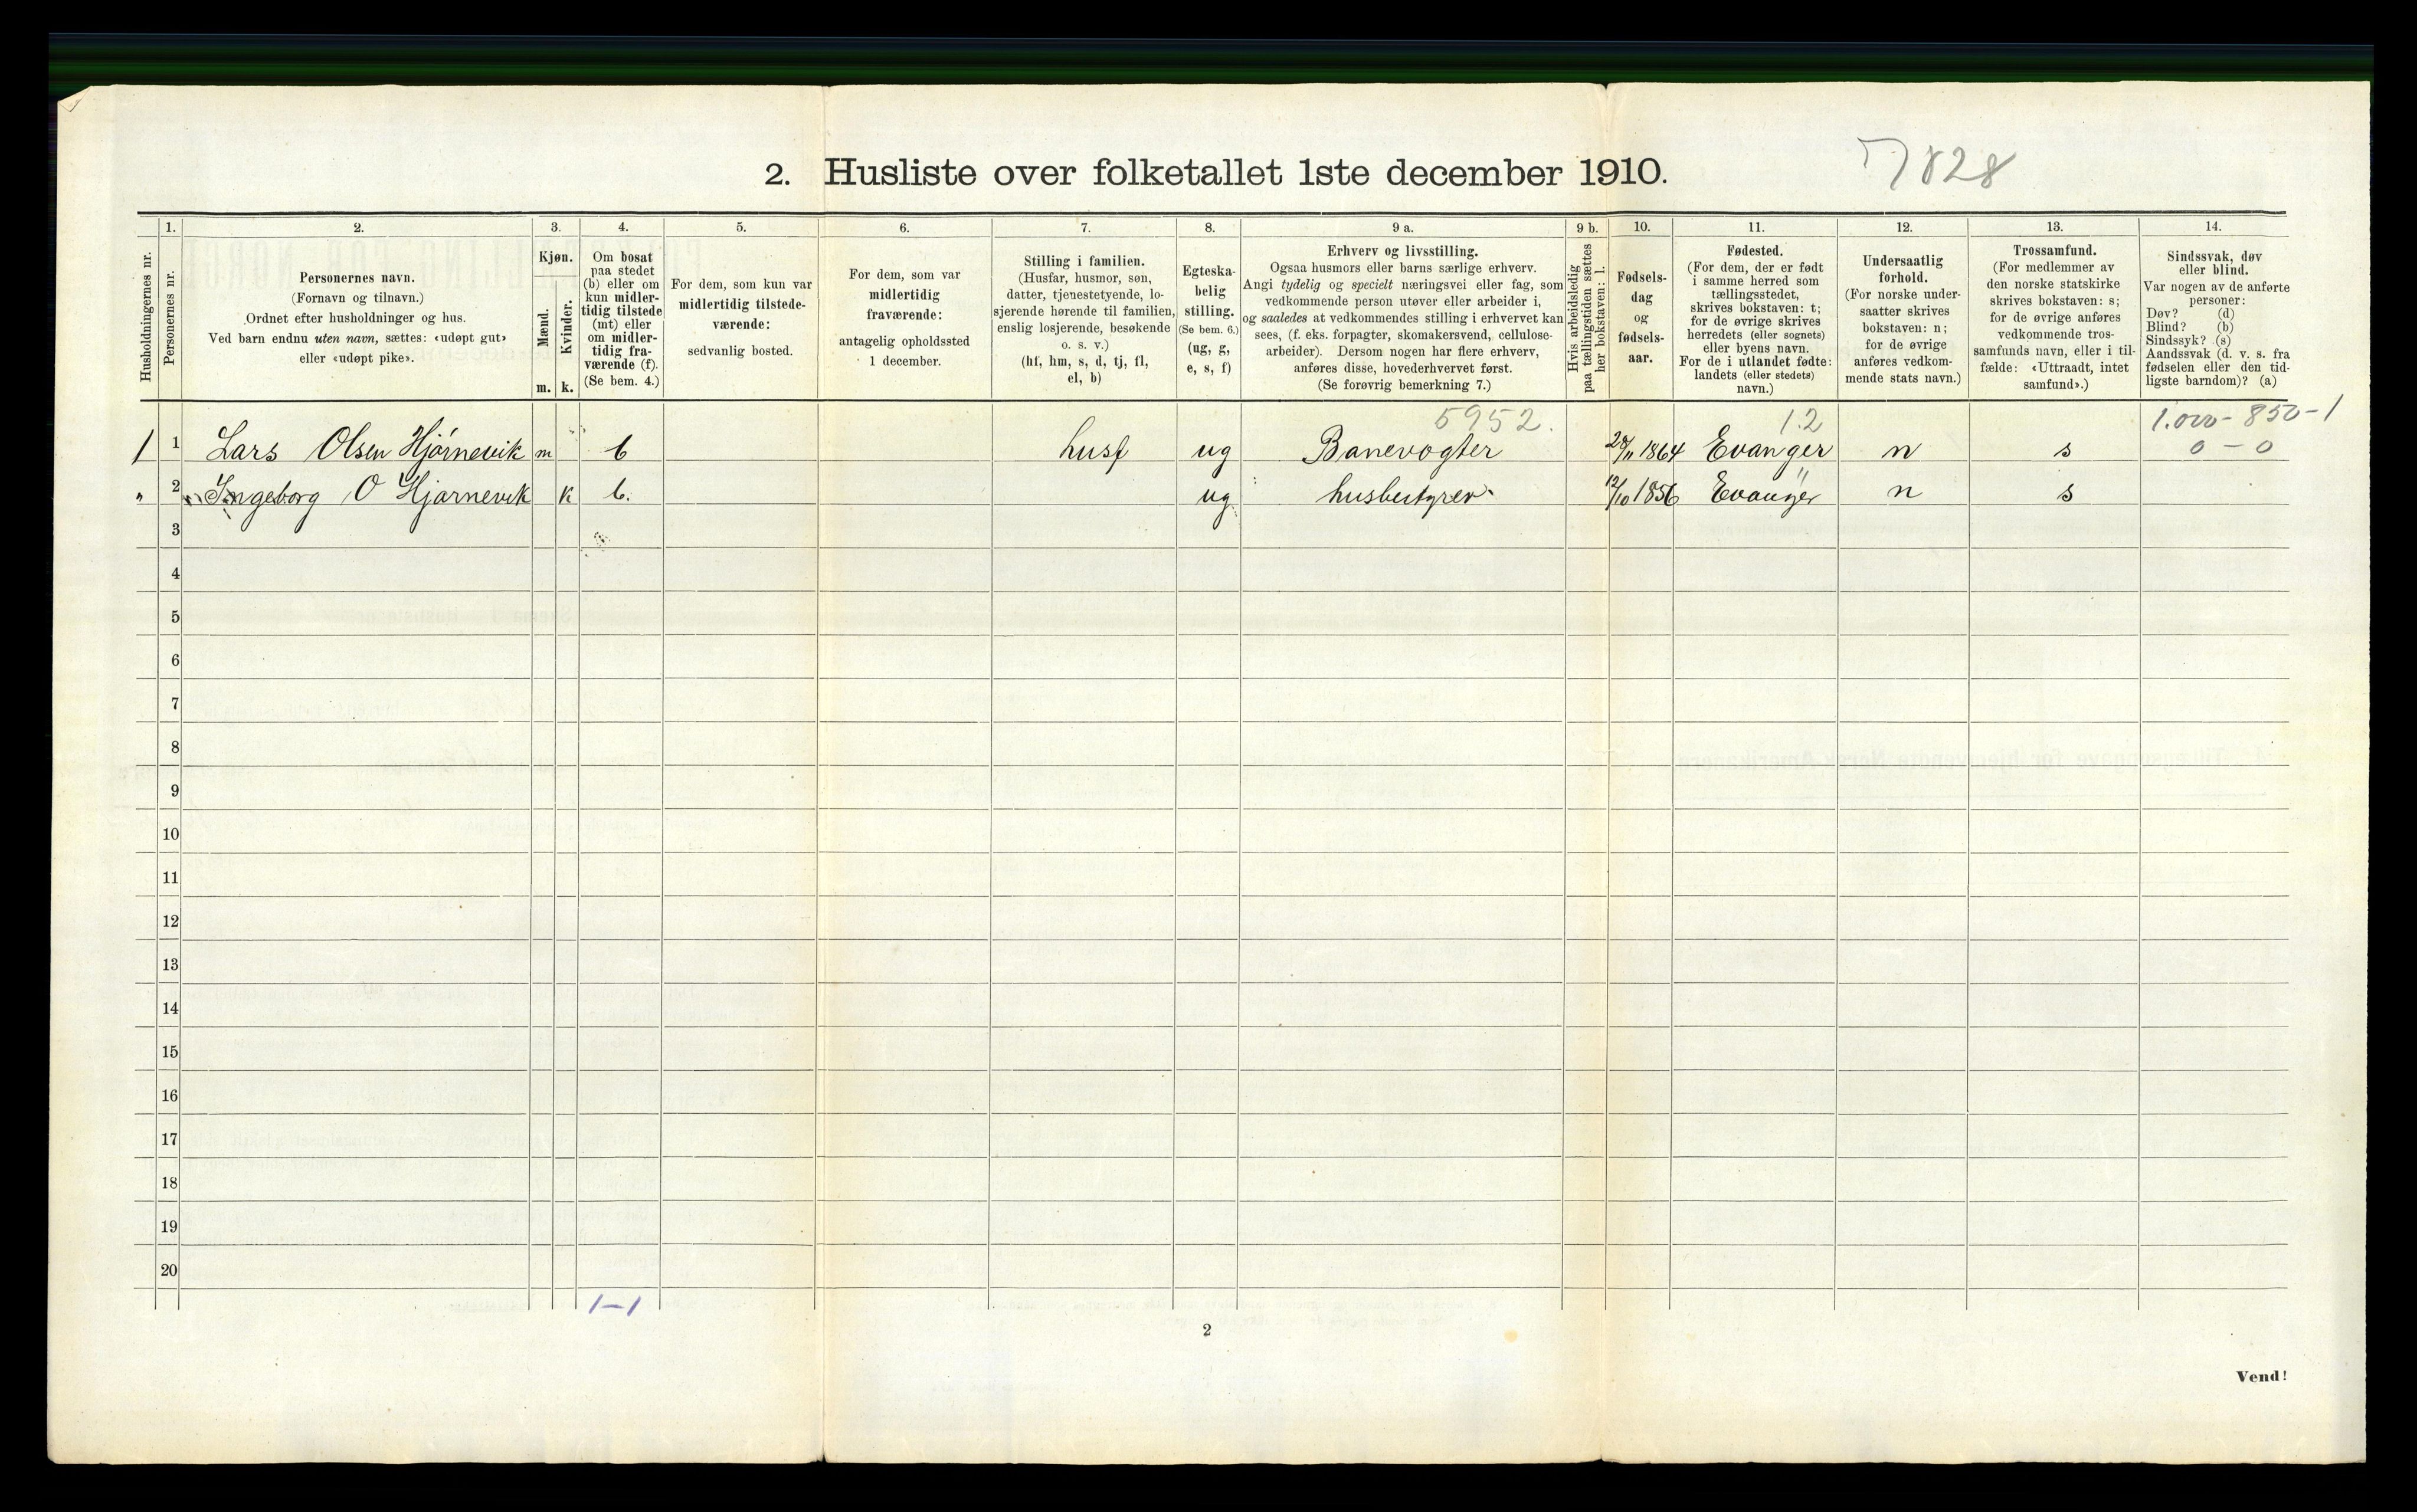 7828
2. Husliste over folketallet 1ste december 1910.
1. 2. 3. 4. 5. 6. 7. 8. 9 a. 9 b. 10. 11. 12. 13. 14.
Husholdningernes nr.
Personernes nr.
Personernes navn.
(Fornavn og tilnavn.)
Ordnet efter husholdninger og hus.
Ved barn endnu uten navn, sættes: «udøpt gut»
eller «udøpt pike».
Kjøn.
Mænd.
Kvinder.
m. k.
Om bosat
paa stedet
(b) eller om
kun midler-
tidig tilstede
(mt) eller
om midler-
tidig fra-
værende (f).
(Se bem. 4.)
For dem, som kun var
midlertidig tilstede-
værende:
sedvanlig bosted.
For dem, som var
midlertidig
fraværende:
antagelig opholdssted
1 december.
Stilling i familien.
(Husfar, husmor, søn,
datter, tjenestetyende, lo-
sjerende hørende til familien,
enslig losjerende, besøkende
o. s. v.)
(hf, hm, s, d, tj, fl,
el, b)
Egteska-
belig
stilling.
(Se bem. 6.)
(ug, g,
e, s, f)
Erhverv og livsstilling.
Ogsaa husmors eller barns særlige erhverv.
Angi tydelig og specielt næringsvei eller fag, som
vedkommende person utøver eller arbeider i,
og saaledes at vedkommendes stilling i erhvervet kan
sees, (f. eks. forpagter, skomakersvend, cellulose-
arbeider). Dersom nogen har flere erhverv,
anføres disse, hovederhvervet først.
(Se forøvrig bemerkning 7.)
Hvis arbeidsledig
paa tællingstiden sættes
her bokstaven: l.
Fødsels-
dag
og
fødsels-
aar.
Fødested.
(For dem, der er født
i samme herred som
tællingsstedet,
skrives bokstaven: t;
for de øvrige skrives
herredets (eller sognets)
eller byens navn.
For de i utlandet fødte:
landets (eller stedets)
navn.)
Undersaatlig
forhold.
(For norske under-
saatter skrives
bokstaven: n;
for de øvrige
anføres vedkom-
mende stats navn.)
Trossamfund.
(For medlemmer av
den norske statskirke
skrives bokstaven: s;
for de øvrige anføres
vedkommende tros-
samfunds navn, eller i til-
fælde: «Uttraadt, intet
samfund».)
Sindssvak, døv
eller blind.
Var nogen av de anførte
personer:
Døv? (d)
Blind? (b)
Sindssyk? (s)
Aandssvak (d. v. s. fra
fødselen eller den tid-
ligste barndom)? (a)
5952. 12 1.000 - 850 - 1
1 1 Lars Olsen Hjørnevik m b husf ug Banevogter 28/11 1864 Evanger n s 0 - 0
" 2 Ingeborg O Hjørnevik k b. ug husbestyrer 12/10 1856 Evanger n s
3
4
5
6
7
8
9
10
11
12
13
14
15
16
17
18
19
20
1-1
2
Vend!